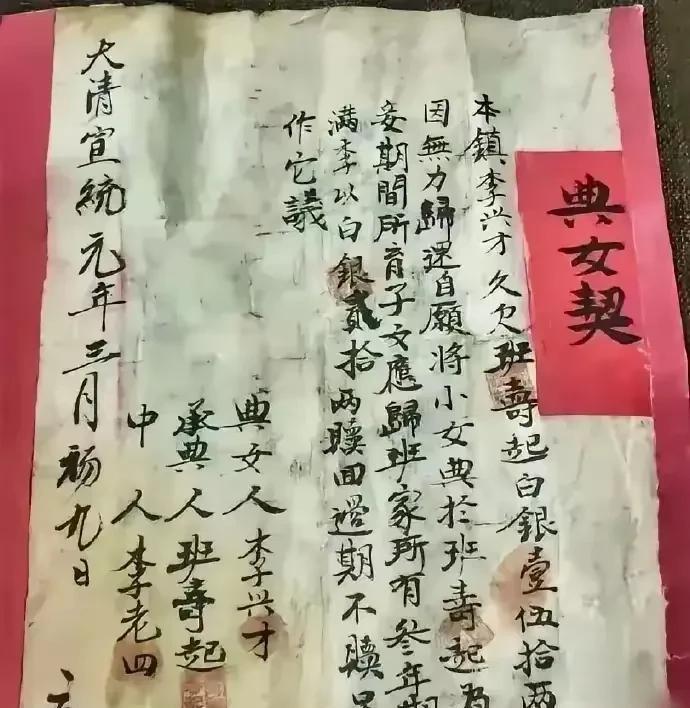 典女契
本鎮李兴才久欠班壽起白銀壹伍拾两
因無力歸还自願將小女典於班壽起为
妾期間所育子女應歸班家所有叁年期
满李以白銀貳拾两贖回過期不贖
作它議
典女人李兴才
承典人班壽起
中人李老四
大清宣統元年三月初九日